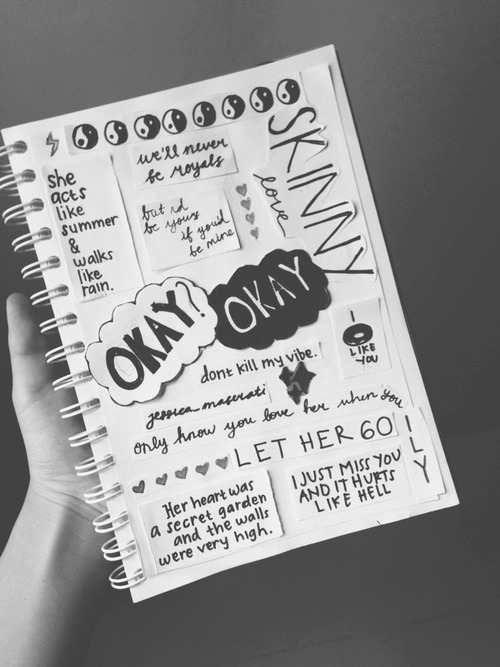 she
acts
like
summer
&
walks
like
rain.
we'll never
be royals
but id
be yours
if you'd
be mine
SKINNY
love
OKAY!
OKAY
I
LIKE
YOU
dont kill my vibe.
jessica maserati
only know you love her when you
LET HER GO
I
L
Y
Her heart was
a secret garden
and the walls
were very high.
I JUST MISS YOU
AND IT HURTS
LIKE HELL